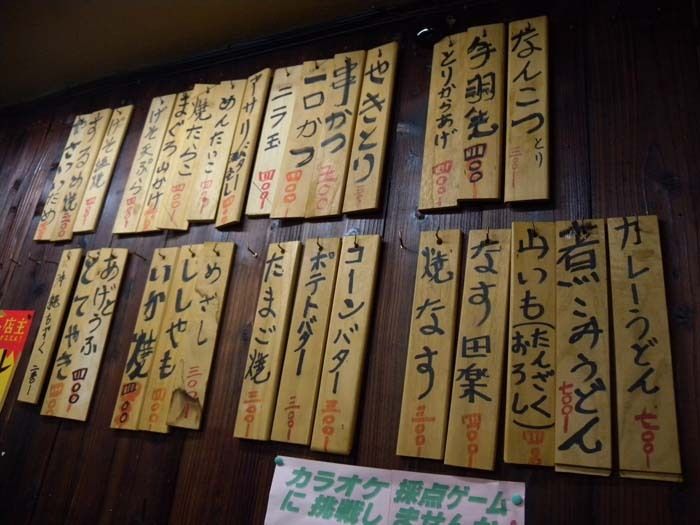 なんこつ とり 三〇〇-
手羽先 四〇〇
とりからあげ 四〇〇-
やきとり 三〇〇-
串かつ 三〇〇
一口かつ 四〇〇
ニラ玉 四〇〇-
アサリ
めんたいこ 四〇〇
焼たらこ 四〇〇
まぐろ山かけ 四〇〇
カレーうどん 七〇〇-
煮こみうどん 七〇〇-
山いも(たんざく おろし)
なす田楽 四〇〇-
焼なす 三〇〇-
コーンバター 三〇〇-
ポテトバター 三〇〇-
たまご焼 三〇〇-
めざし 三〇〇
ししゃも 四〇〇
いか焼 四〇〇
あげどうふ
どてやき 四〇〇
沖縄もずく 三〇〇-
店主
カラオケ 採点ゲーム
に 挑戦し ません